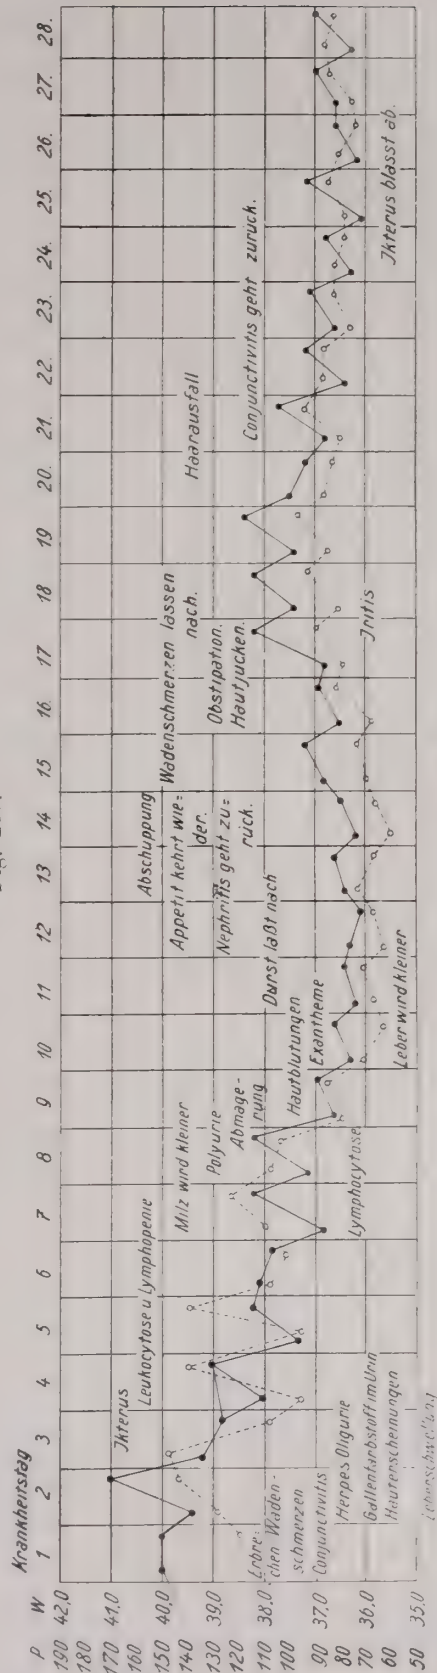 Krankheitstag
1 2 3 4 5 6 7 8 9 10 11 12 13 14 15 16. 17 18 19 20. 21. 22. 23. 24. 25. 26. 27. 28.
P W
190 42,0
180
170 41,0
160
150 40,0
140
130 39,0
120
110 38,0
100
90 37,0
80
70 36,0
60
50 35,0
Jkterus
Leukocytose u Lymphopenie
Erbre-
chen Waden-
schmerzen
Conjunctivitis
Herpes Oligurie
Gallenfarbstoff im Urin
Hauterscheinungen
Leberschwellung
Milz wird kleiner
Polyurie
Abmage-
rung
Lymphocytose
Hautblutungen
Exantheme
Leber wird kleiner
Durst läßt nach
Abschuppung
Appetit kehrt wie=
der.
Nephritis geht zu=
rück.
Wadenschmerzen lassen
nach.
Obstipation.
Hautjucken.
Jritis
Haarausfall
Conjunctivitis geht zurück.
Jkterus blasst ab.